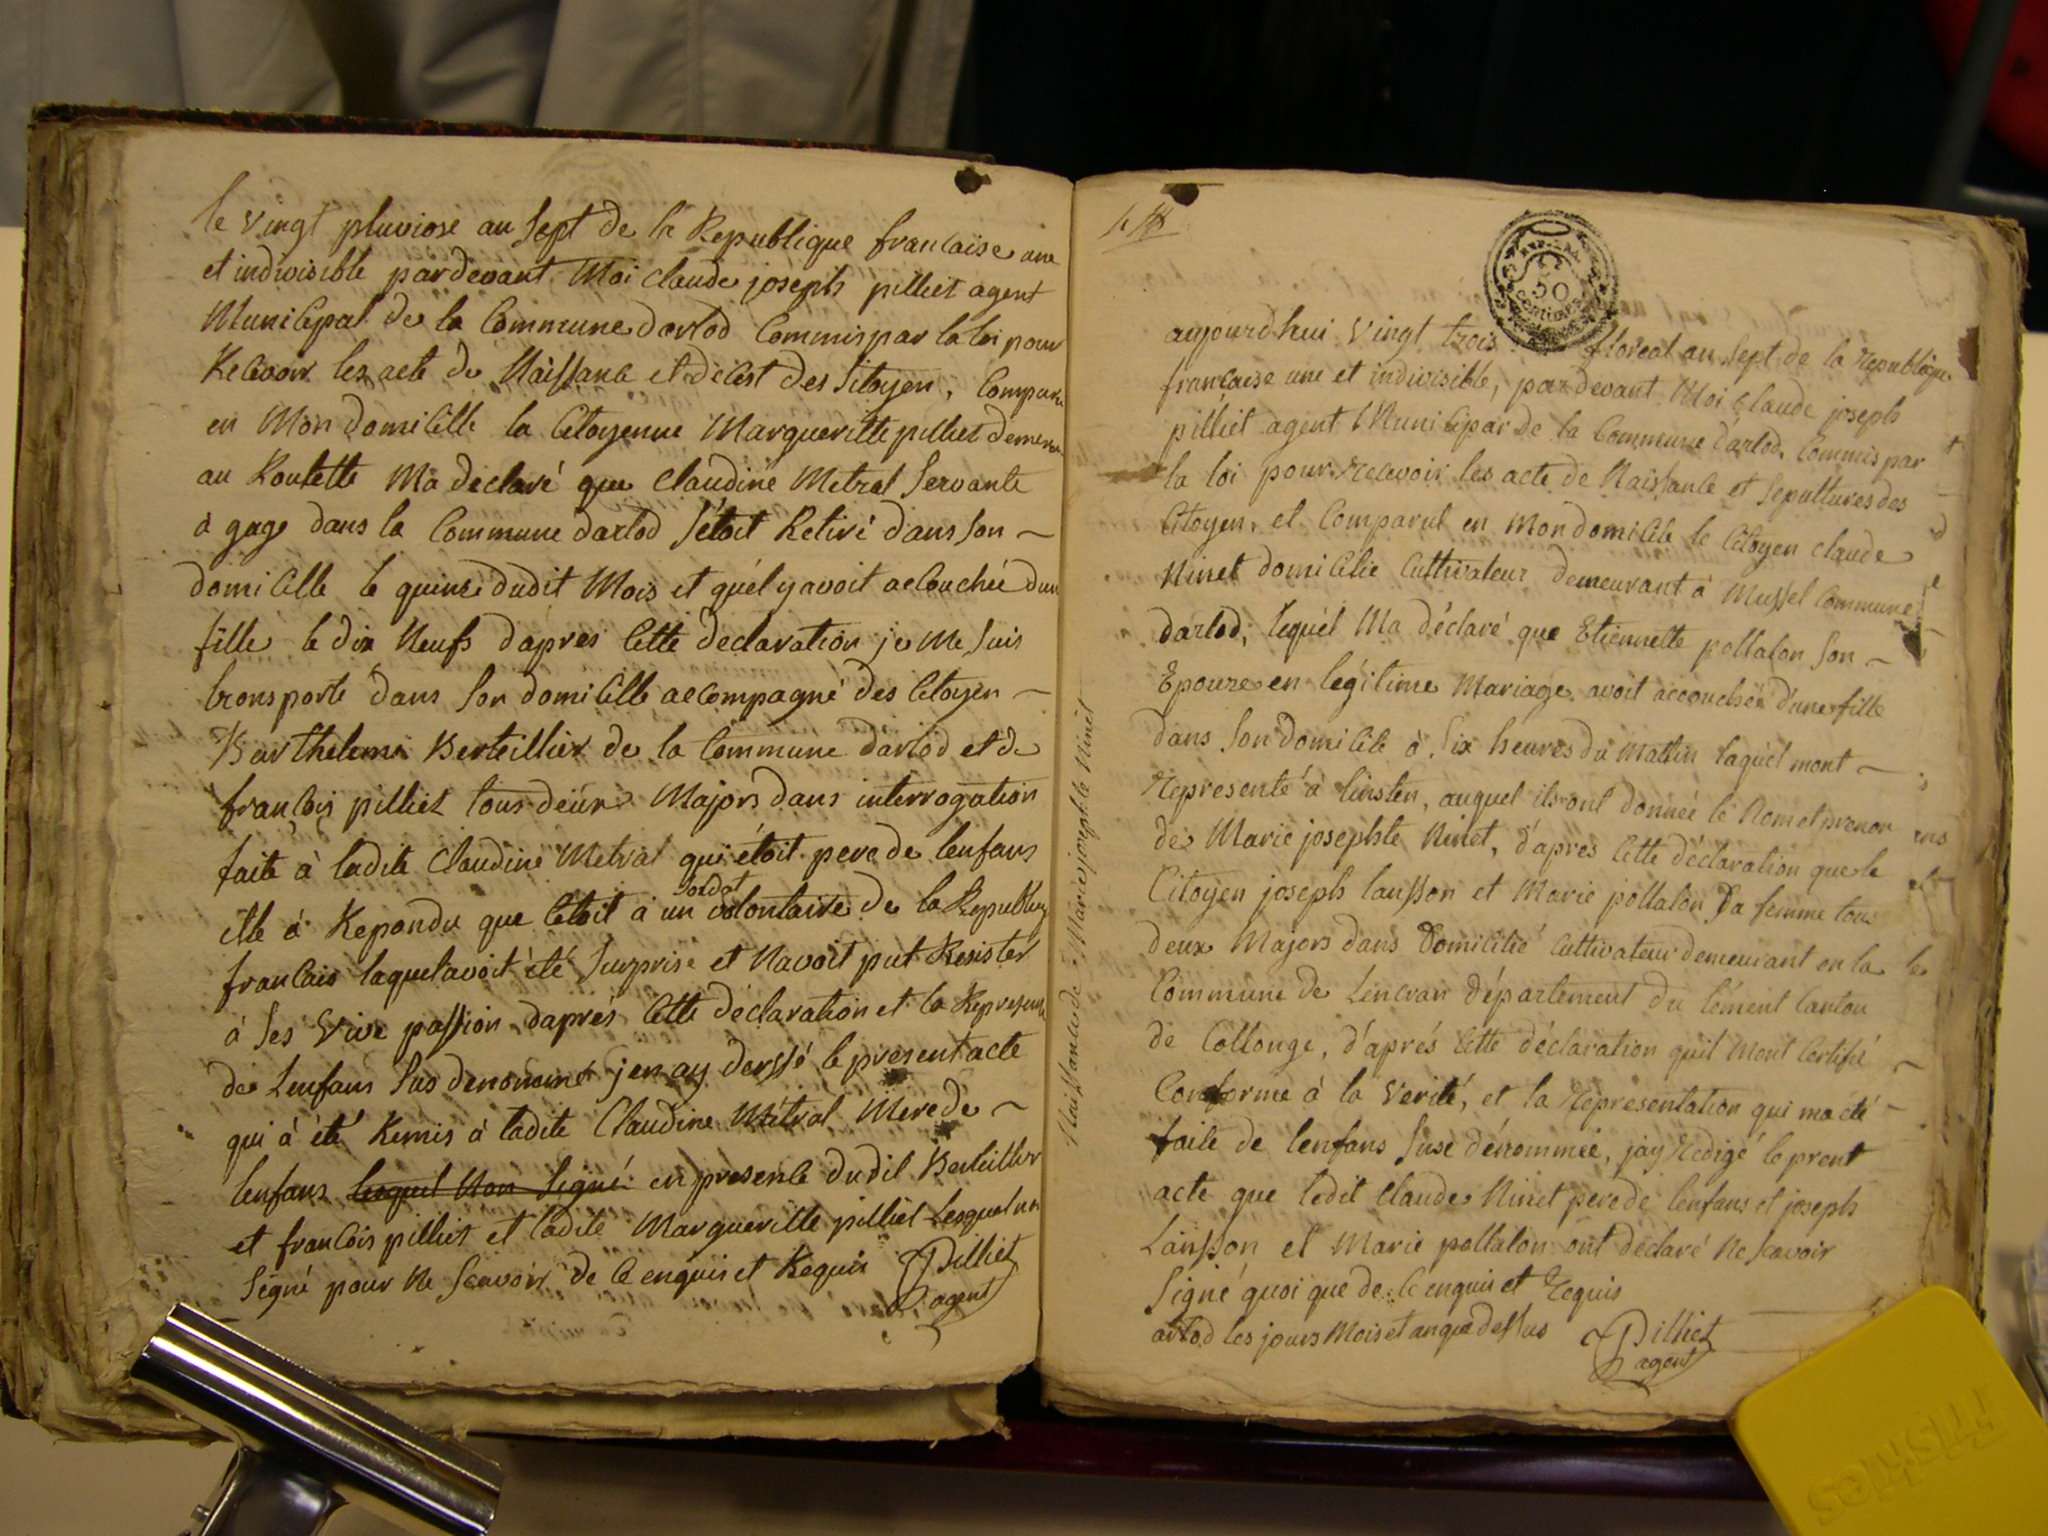 le Vingt pluviose an Sept de la Republique francaise une
et indivisible pardevant Moi Claude joseph pilliet agent
Municipal de la Commune darlod Commis par la loi pour
Recevoir les acte de Naissance et decest des Sitoyen, Compara
en Mon domicille la Citoyenne Margueritte pilliet demeur
au Koulette Ma declaré que Claudine Metral Servante
à gage dans la Commune darlod S'étoit Retiré dans son ~
domicille le quinze dudit Mois et qu'el y avoit accouchée dun
fille le dix Neufs d'aprés Cette declaration je Me suis
transporté dans Son domicille accompagné des Citoyen ~
Barthelemi Berteillier de la Commune darlod et de
francois pilliet tous deux Majors dans interrogation
faite à ladite Claudine Metral qui étoit pere de lenfans
elle à Repondu que Cetoit à un soldat volontaire de la Republiq
francais laquel avoit été Surprise et Navoit put Resister
à Ses Vive passion, d'aprés Cette declaration et la Represent
de Lenfans Sus denommé j'en ay derssé le present acte
qui à été Remis à ladite Claudine Métral Mere de ~
lenfans lequel Non Signé en presence dudit Berteiller
et francois pilliet et ladite Margueritte pilliet Lesquel non
Signé pour Ne Scavoir de Ce enquis et Requis Pilliet
agent
Naissante de Marie josephte Ninet
50
Centimes
aujourdhui Vingt trois floreal an Sept de la republique
francaise une et indivisible, pardevant Moi Claude joseph
pilliet agent Municipar de la Commune d'arlod, Commis par
la loi pour recevoir les acte de Naissance et Sepultures des
Citoyen, et Comparut en Mon domicile le Citoyen Claude
Ninet domicilie Cultivateur demeurant à Mussel Commune
darlod, lequél Ma déclaré que Etiennette pollalon Son ~
Epouze en légitime Mariage avoit accouchée d'une fille
dans Son domicile à Six heures du Mattin laquel mont ~
représenté à linsten, auquel ils ont donnée le Nom et prenon
de Marie josephte Ninet, d'aprés Cette déclaration que le
Citoyen joseph lansson et Marie pollalon Sa femme tous
deux Majors dans Domicilié Cultivateur demeurant en la
Commune de Lencran département du lément Canton
de Collonge, d'aprés Cette déclaration quil Mont Certifié
Conforme à la Verité, et la représentation qui ma été
faite de lenfans Suse dénommée, jay rédigé le prent
acte que ledit Claude Ninet pere de lenfans et joseph
Lansson et Marie pollalon ont déclaré Ne Scavoir
Signé quoi que de Ce enquis et Requis
arlod les jours Mois et an que dessus Pilliet
agent